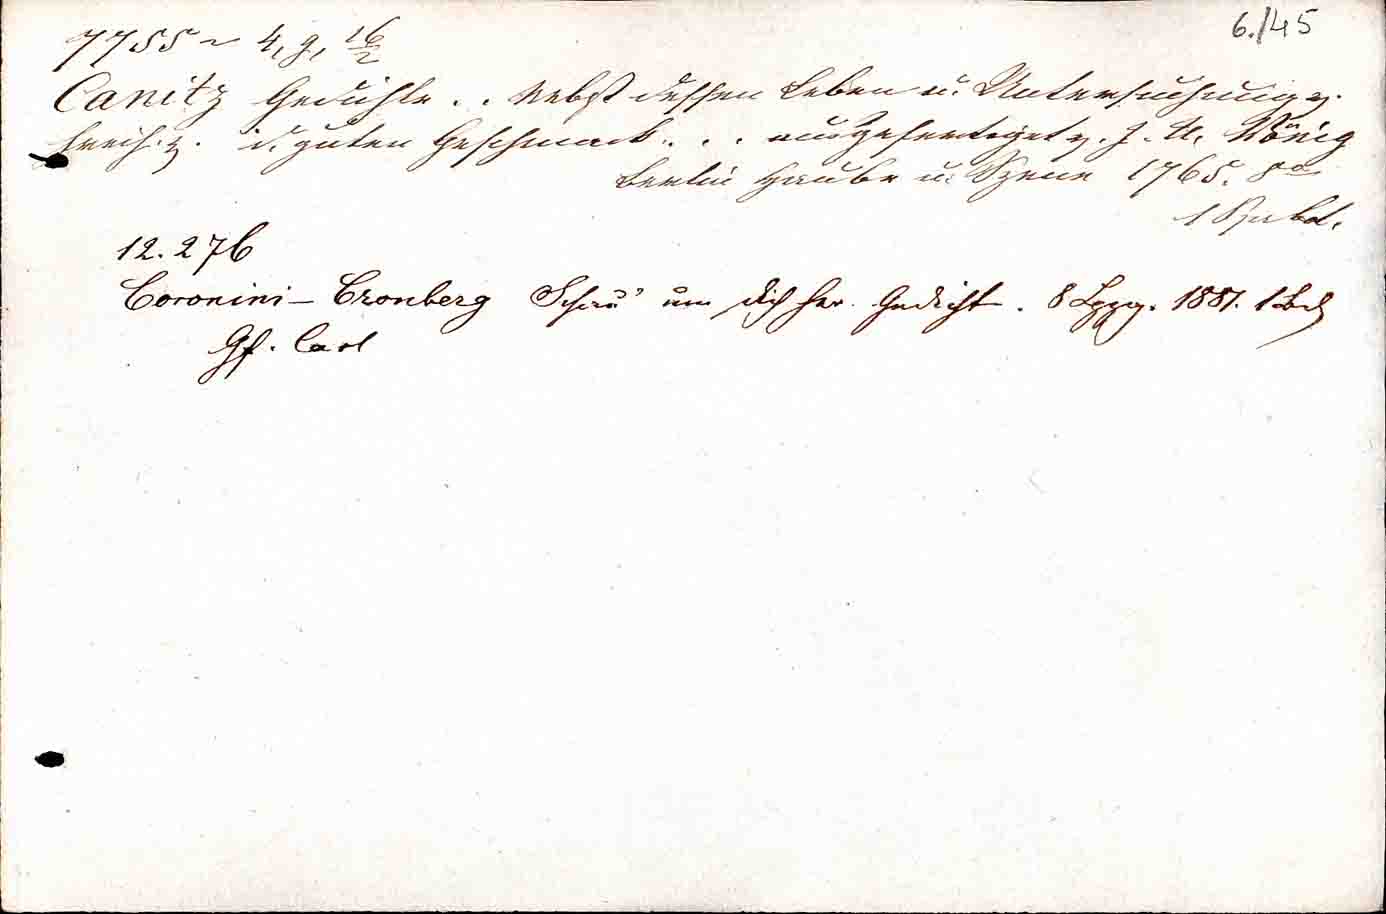 6./45
7755 ~ 4, g, 16/2
Canitz Gedichte .. Nebst dessen Leben u. Untersuchung v.
Freih. v. d. guten Geschmack . . . ausgefertiget v. J. U. König
Berlin Haube u. Spener 1765. 8o
1 Hrbd.
12.276
Coronini-Cronberg Schau' um dich her. Gedicht. 8 Lpzg. 1881. 1 Bd
Gf. Carl